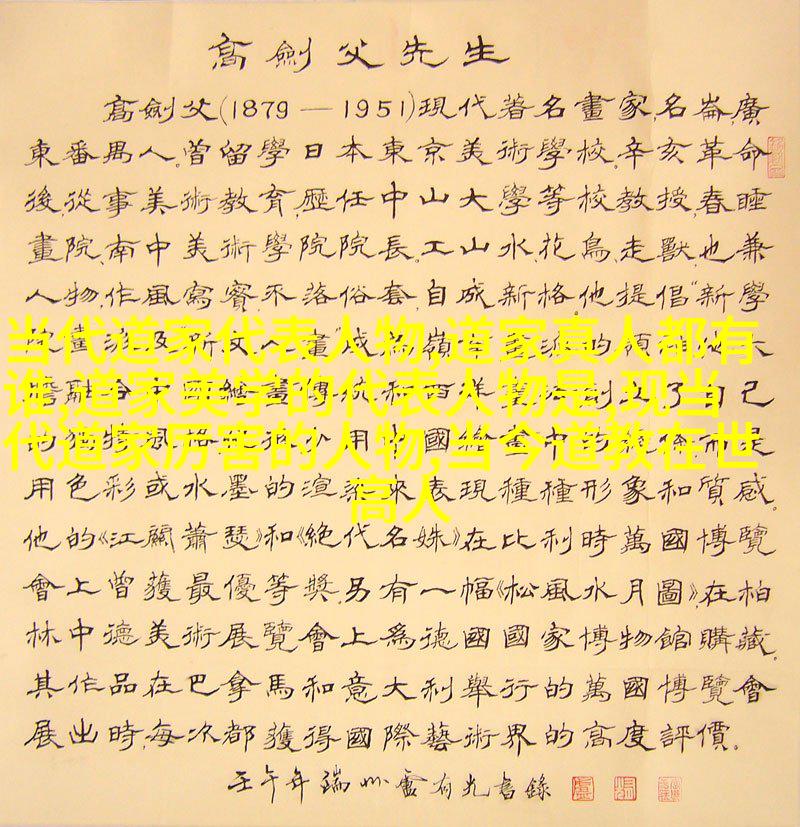 高劍父先生
高劍父(1879—1951)現代著名畫家,名崙,廣
東番禺人。曾留學日本東京美術學校。辛亥革命
後,從事美術教育,歷任中山大學等校教授,春睡
畫院、南中美術學院院長。工山水、花鳥、走獸,也兼
人物,作風寫實,不落俗套,自成新格。他提倡"新學
畫派及新文人畫成爲嶺
当代道家代表人物,道家真人都有
融合中國繪畫傳統和西洋 自己
谁,道家美学的代表人物是,现当
的 風格 用中國繪畫中的 是
代道家厉害的人物,当今道教在世
用色彩或水墨的渲 來表現種種形象和質感。
高人
他的《江關蕭瑟》和《絕代名姝》在比利時萬國博覽
會上曾獲最優等獎。另有一幅《松風水月圖》,在柏
林中德美術展覽會上爲德國國家博物館購藏。
其作品在巴拿馬和意大利舉行的萬國博覽會
展出時,每次都獲得國際藝術界的高度評價。
壬午年 瑞州 盧有光書錄